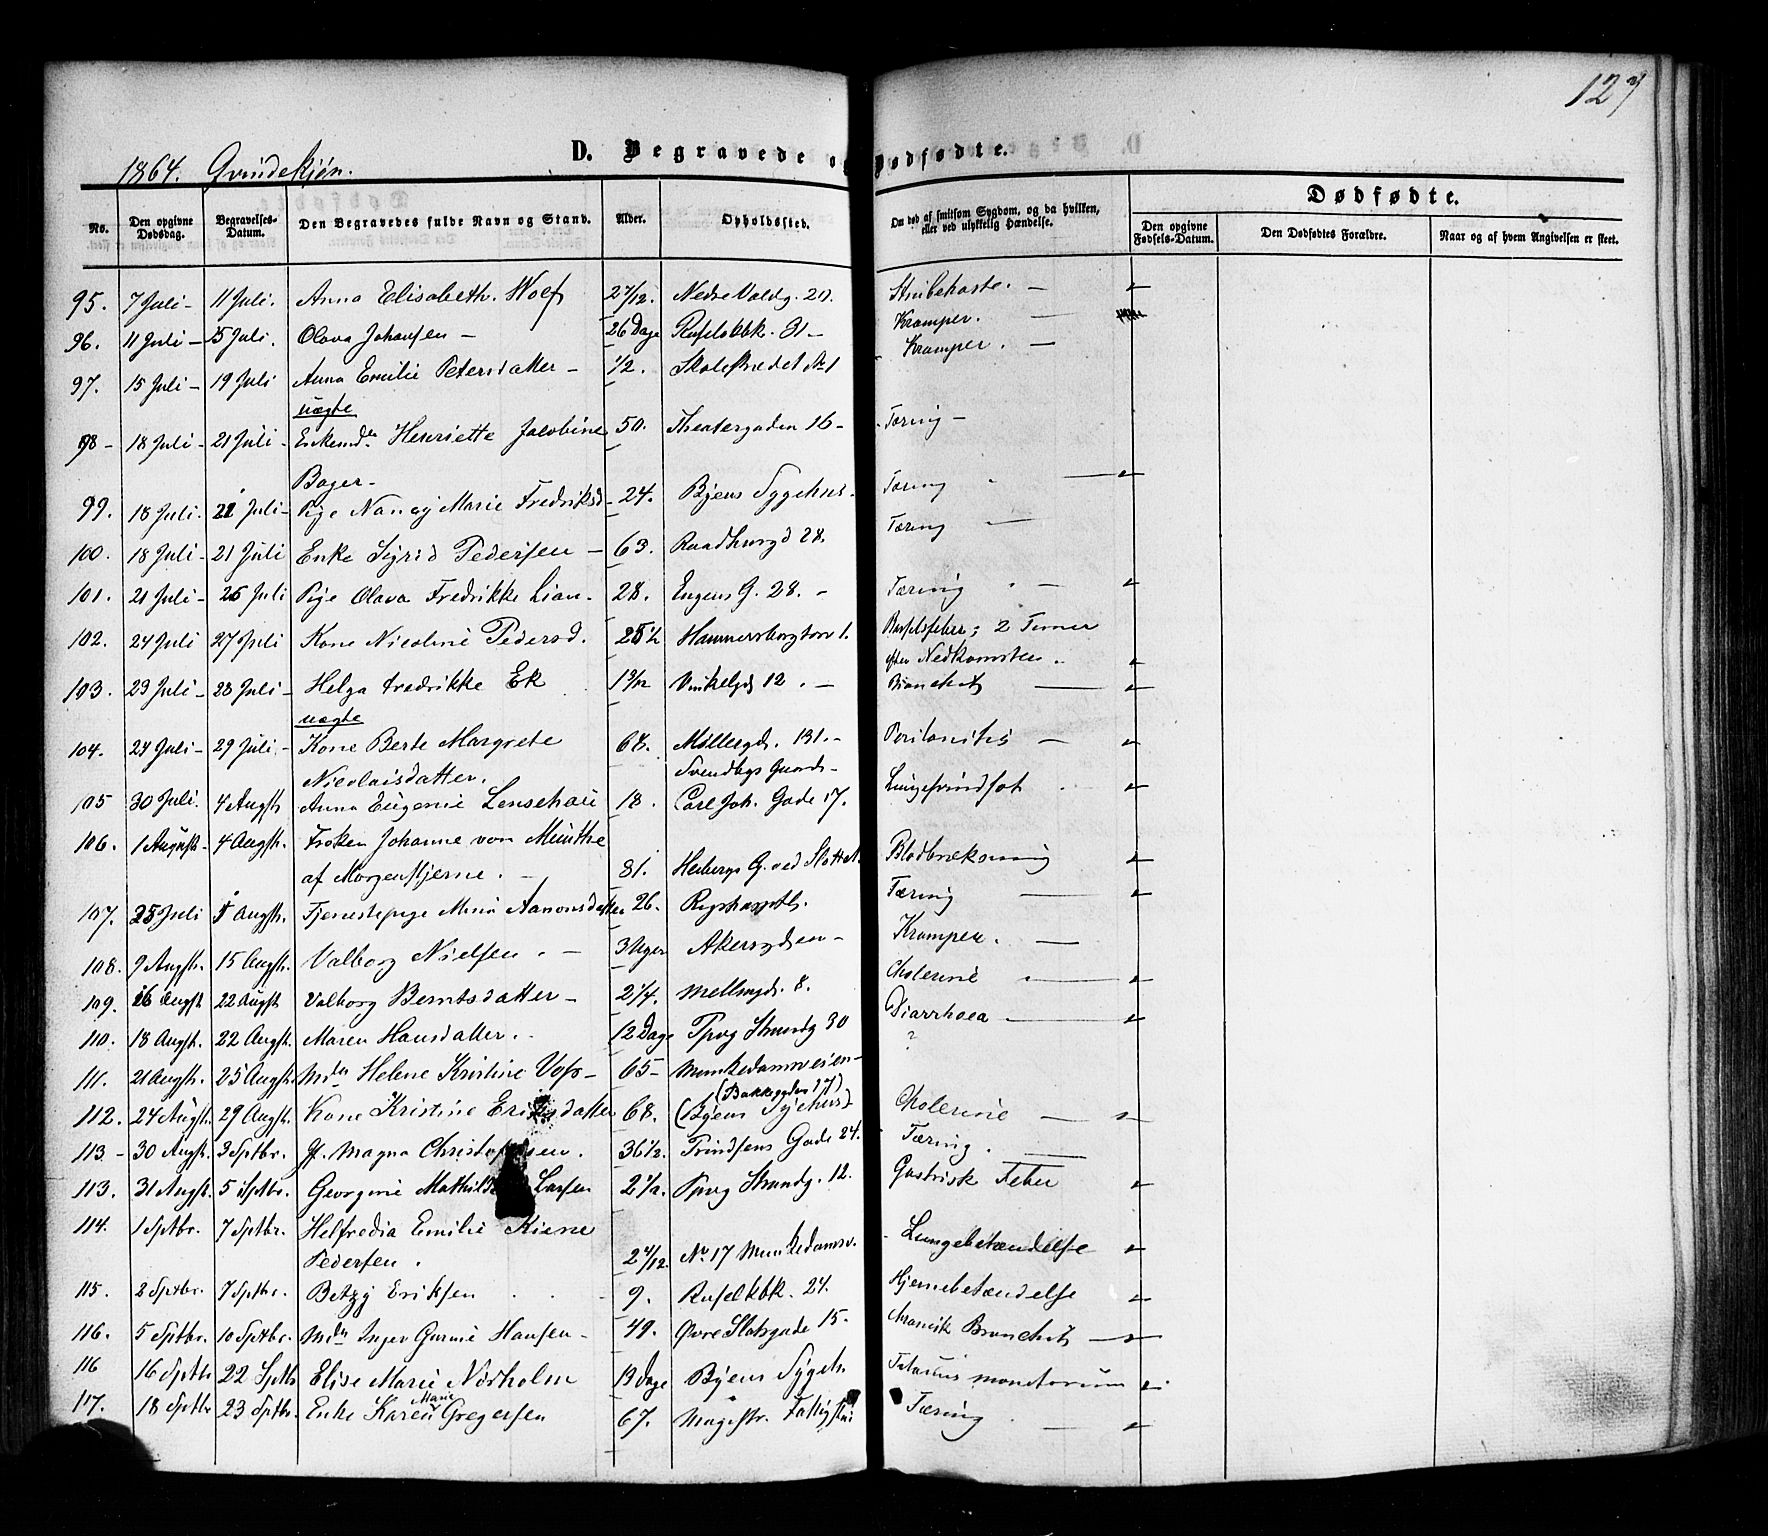 127
1864. Qvindekjön.
D. Begravede og Dødfødte.
No. Den opgivne Dødsdag. Begravelses-Datum. Den Begravedes fulde Navn og Stand. Alder. Opholdssted. Om død af smitsom Sygdom, og da hvilken, eller ved ulykkelig Hændelse. Dødfødte.
Den opgivne Fødsels-Datum. Den Dødfødtes Forældre. Naar og af hvem Angivelsen er skeet.
95. 7 Juli - 11 Juli. Anna Elisabeth. Wolf 2 7/12. Nedre Voldg. 20. Strubehoste. -
96. 11 Juli - 15 Juli. Olava Johansen - 26 Dage Ruseløkbk. 31 - Kramper. -
97. 15 Juli - 19 Juli Anna Emilie Petersdatter - 1/2. Skolestrædet No 1 Kramper. -
uægte
98 - 18 Juli - 21 Juli - Enkemd. Henriette Jacobine 50. Theatergaden 16 - Tæring -
Boyer -
99. 18 Juli. 22 Juli - Pige Nancy Marie Fredriksd - 24. Byens Sygehus. Tæring
100. 18 Juli - 21 Juli Enke Sigrid Pedersen - 63. Raadhusgd 28. Tæring -
101. 21 Juli - 26 Juli Pige Olava Fredrikke Lian. 28. Engens G. 28. - Tæring -
102. 24 Juli 27 Juli Kone Nicoline Pedersd. 25 1/2 Hammersborgtorv 1. Barselfeber; 2 Timer
efter Nedkomsten.
103. 23 Juli - 28 Juli - Helga Fredrikke Ek 1 3/12 Vinkelgd 12. - Bronchit -
uægte
104. 24 Juli - 29 Juli - Kone Berte Margrete 68. Møllergd. 131. - Peritonitis -
Nicolaisdatter. Svendbys Gaard -
105 30 Juli. 4 Augst. Anna Eugenie Lenschau 18. Carl Joh. Gade 17. Lungesvindsot
106. 1 August. 4 Augst. Frøken Johanne von Munthe
af Morgenstjerne. - 81. Heibergs G. ved Slottet. Blodbrækning
107. 25 Juli 5 Augst. Tjenestepige Mina Aanonsdatter 26. Rigshospitl. Tæring
108. 9 Augst. 15 Augst. Valborg Nielsen. - 3 Uger Akersgden - Kramper. -
109. 16 Augst 22 Augst Valborg Berntsdatter - 2 1/4. Møllergd. 8. Cholerine
110. 18 Augst. 22 Augst. Maren Hansdatter. . 12 Dage Tpvg Strandg 30 Diarrhoea
111. 21 Augst. 25 Augst. Mdm Helene Kristine Voss - 65 - Munkedamsveien - ?
(Bakkegden 17)
112. 24 Augst. 29 Augst. Kone Kristine Eriksdatter 68. (Byens Sygehus) Cholerine -
113 - 30 Augst. 3 Sptbr. Jf. Magna Christophersen. 36 1/2. Prindsens Gade 24. Tæring.
113. 31 Augst. 5 Sptbr. Georgine Mathilde Larsen 2 1/2. Tpvg Strandg. 12. Gastrisk Feber
114. 1 Sptbr. 7 Sptbr. Helfredia Emilie Kiene
Pedersen. 2 4/12. No 17 Munkedamsv. Lungebetændelse
115. 2 Sptbr. 7 Sptbr. Betzy Eriksen 9. Ruseløkbk. 24. Hjernebetændelse
116. 5 Sptbr. 10 Sptbr. Mdm Inger Gurine Hansen - 49. Øvre Slotsgade 15. Chronisk Bronchit
116 16 Sptbr 22 Sptb Elise Marie Norholm 13 Dage Byens Sygeh. Tetanus neonatorum
117. 18 Sptbr 23 Sptbr. Enke Karen Marie Gregersen 67. Magistr. Fattigstue Tæring